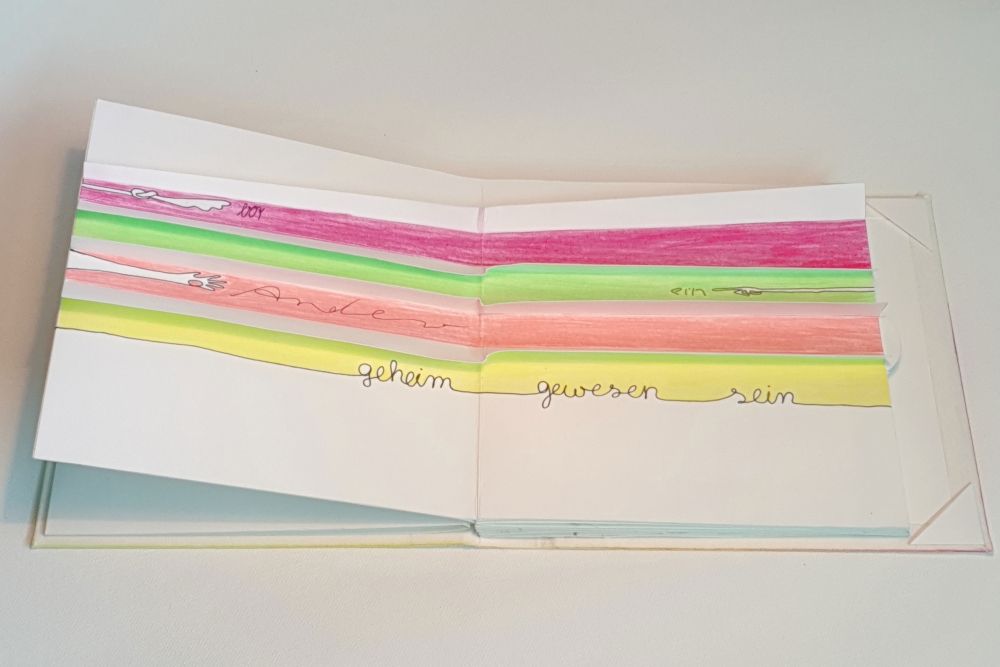 vor
ein
Andern
geheim gewesen sein